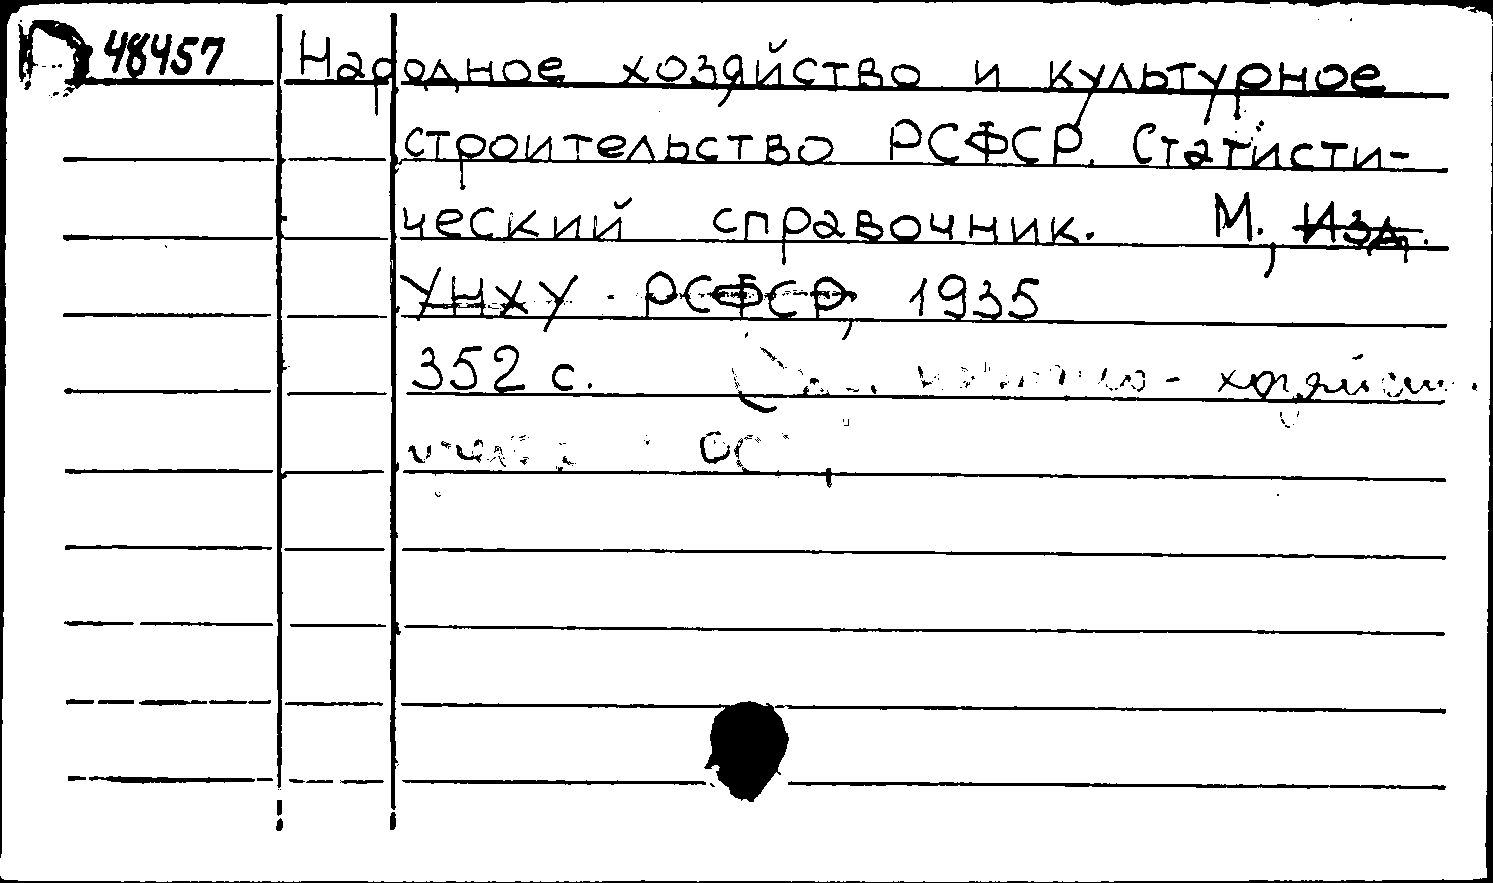 48457 Народное хозяйство и культурное
строительство РСФСР. Статисти-
ческий справочник. М., Изд.
УНХУ РСФСР, 1935
352 с. - хозяйств.